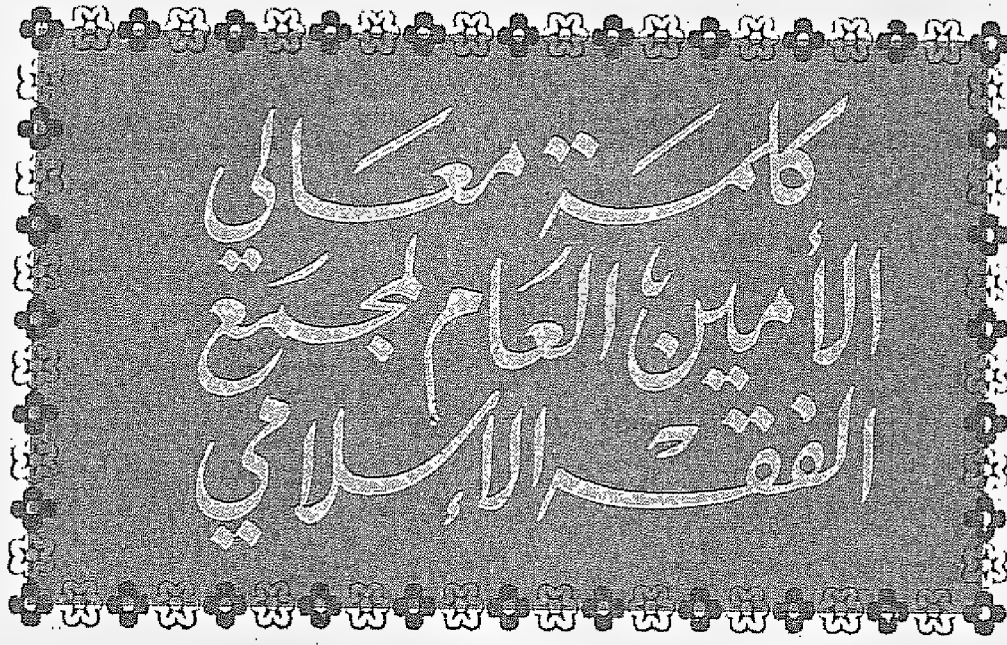 كلمة معالي
الأمين العام لمجمع
الفقه الإسلامي